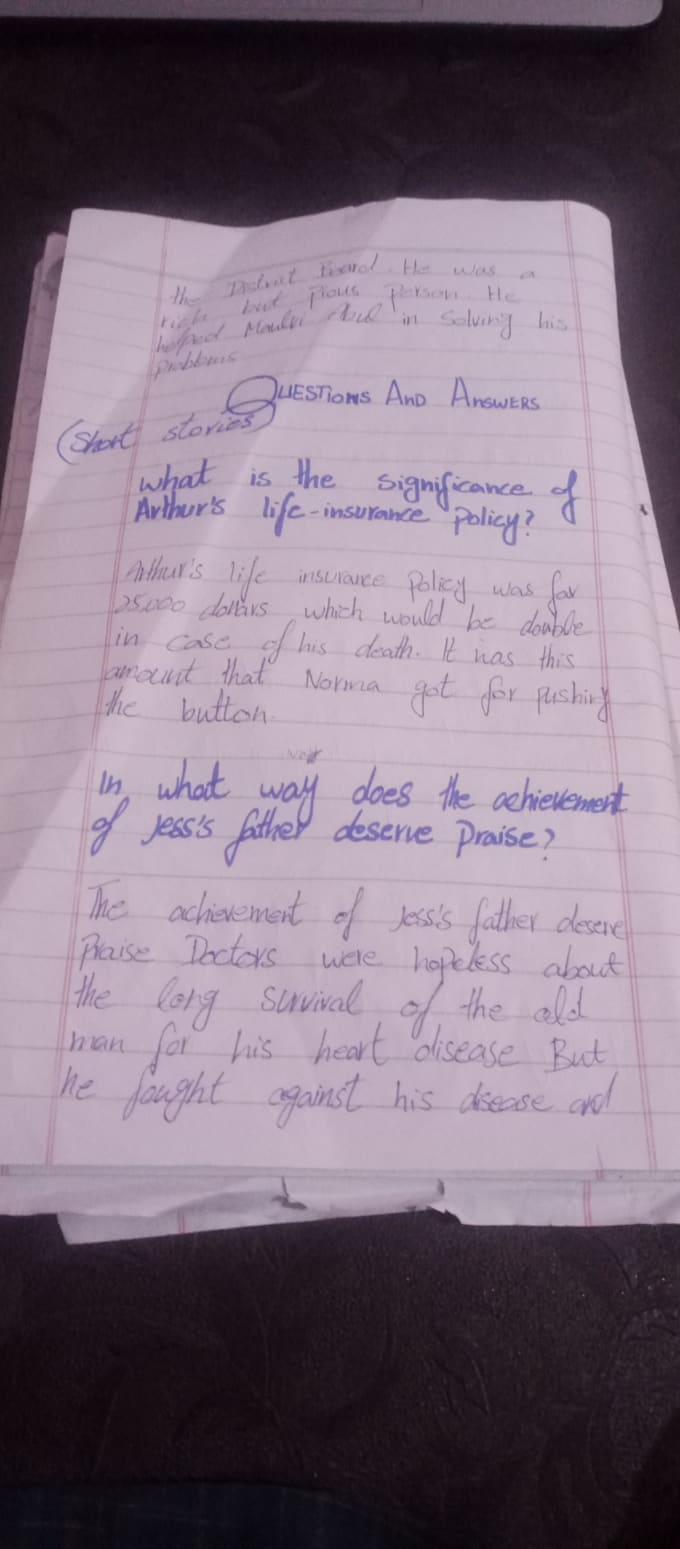 the District Board. He was a
rich but Pious Person. He
helped Maulvi Abul in Solving his
Problems
QUESTIONS AND ANSWERS
(Short stories)
what is the significance of
Arthur's life-insurance policy?
Arthur's life insurance policy was for
25,000 dollars which would be double
in case of his death. It was this
amount that Norma got for pushing
the button.
In what way does the achievement
of Jess's father deserve Praise?
The achievement of Jess's father deserve
Praise Doctors were hopeless about
the long survival of the old
man for his heart disease But
he fought against his disease and